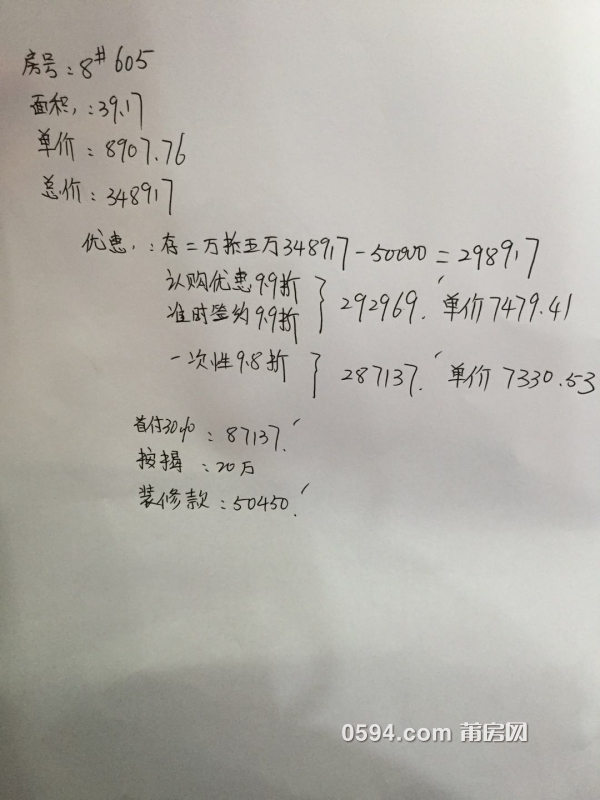 房号：8# 605
面积，：39.17
单价：8907.76
总价：348917
优惠，：存二万抵五万348917-50000=298917
认购优惠9.9折
准时签约9.9折 } 292969.′ 单价7479.41
一次性9.8折 } 287137.′ 单价7330.53
首付30%：87137.′
按揭：20万
装修款：50450.′
0594.com 莆房网